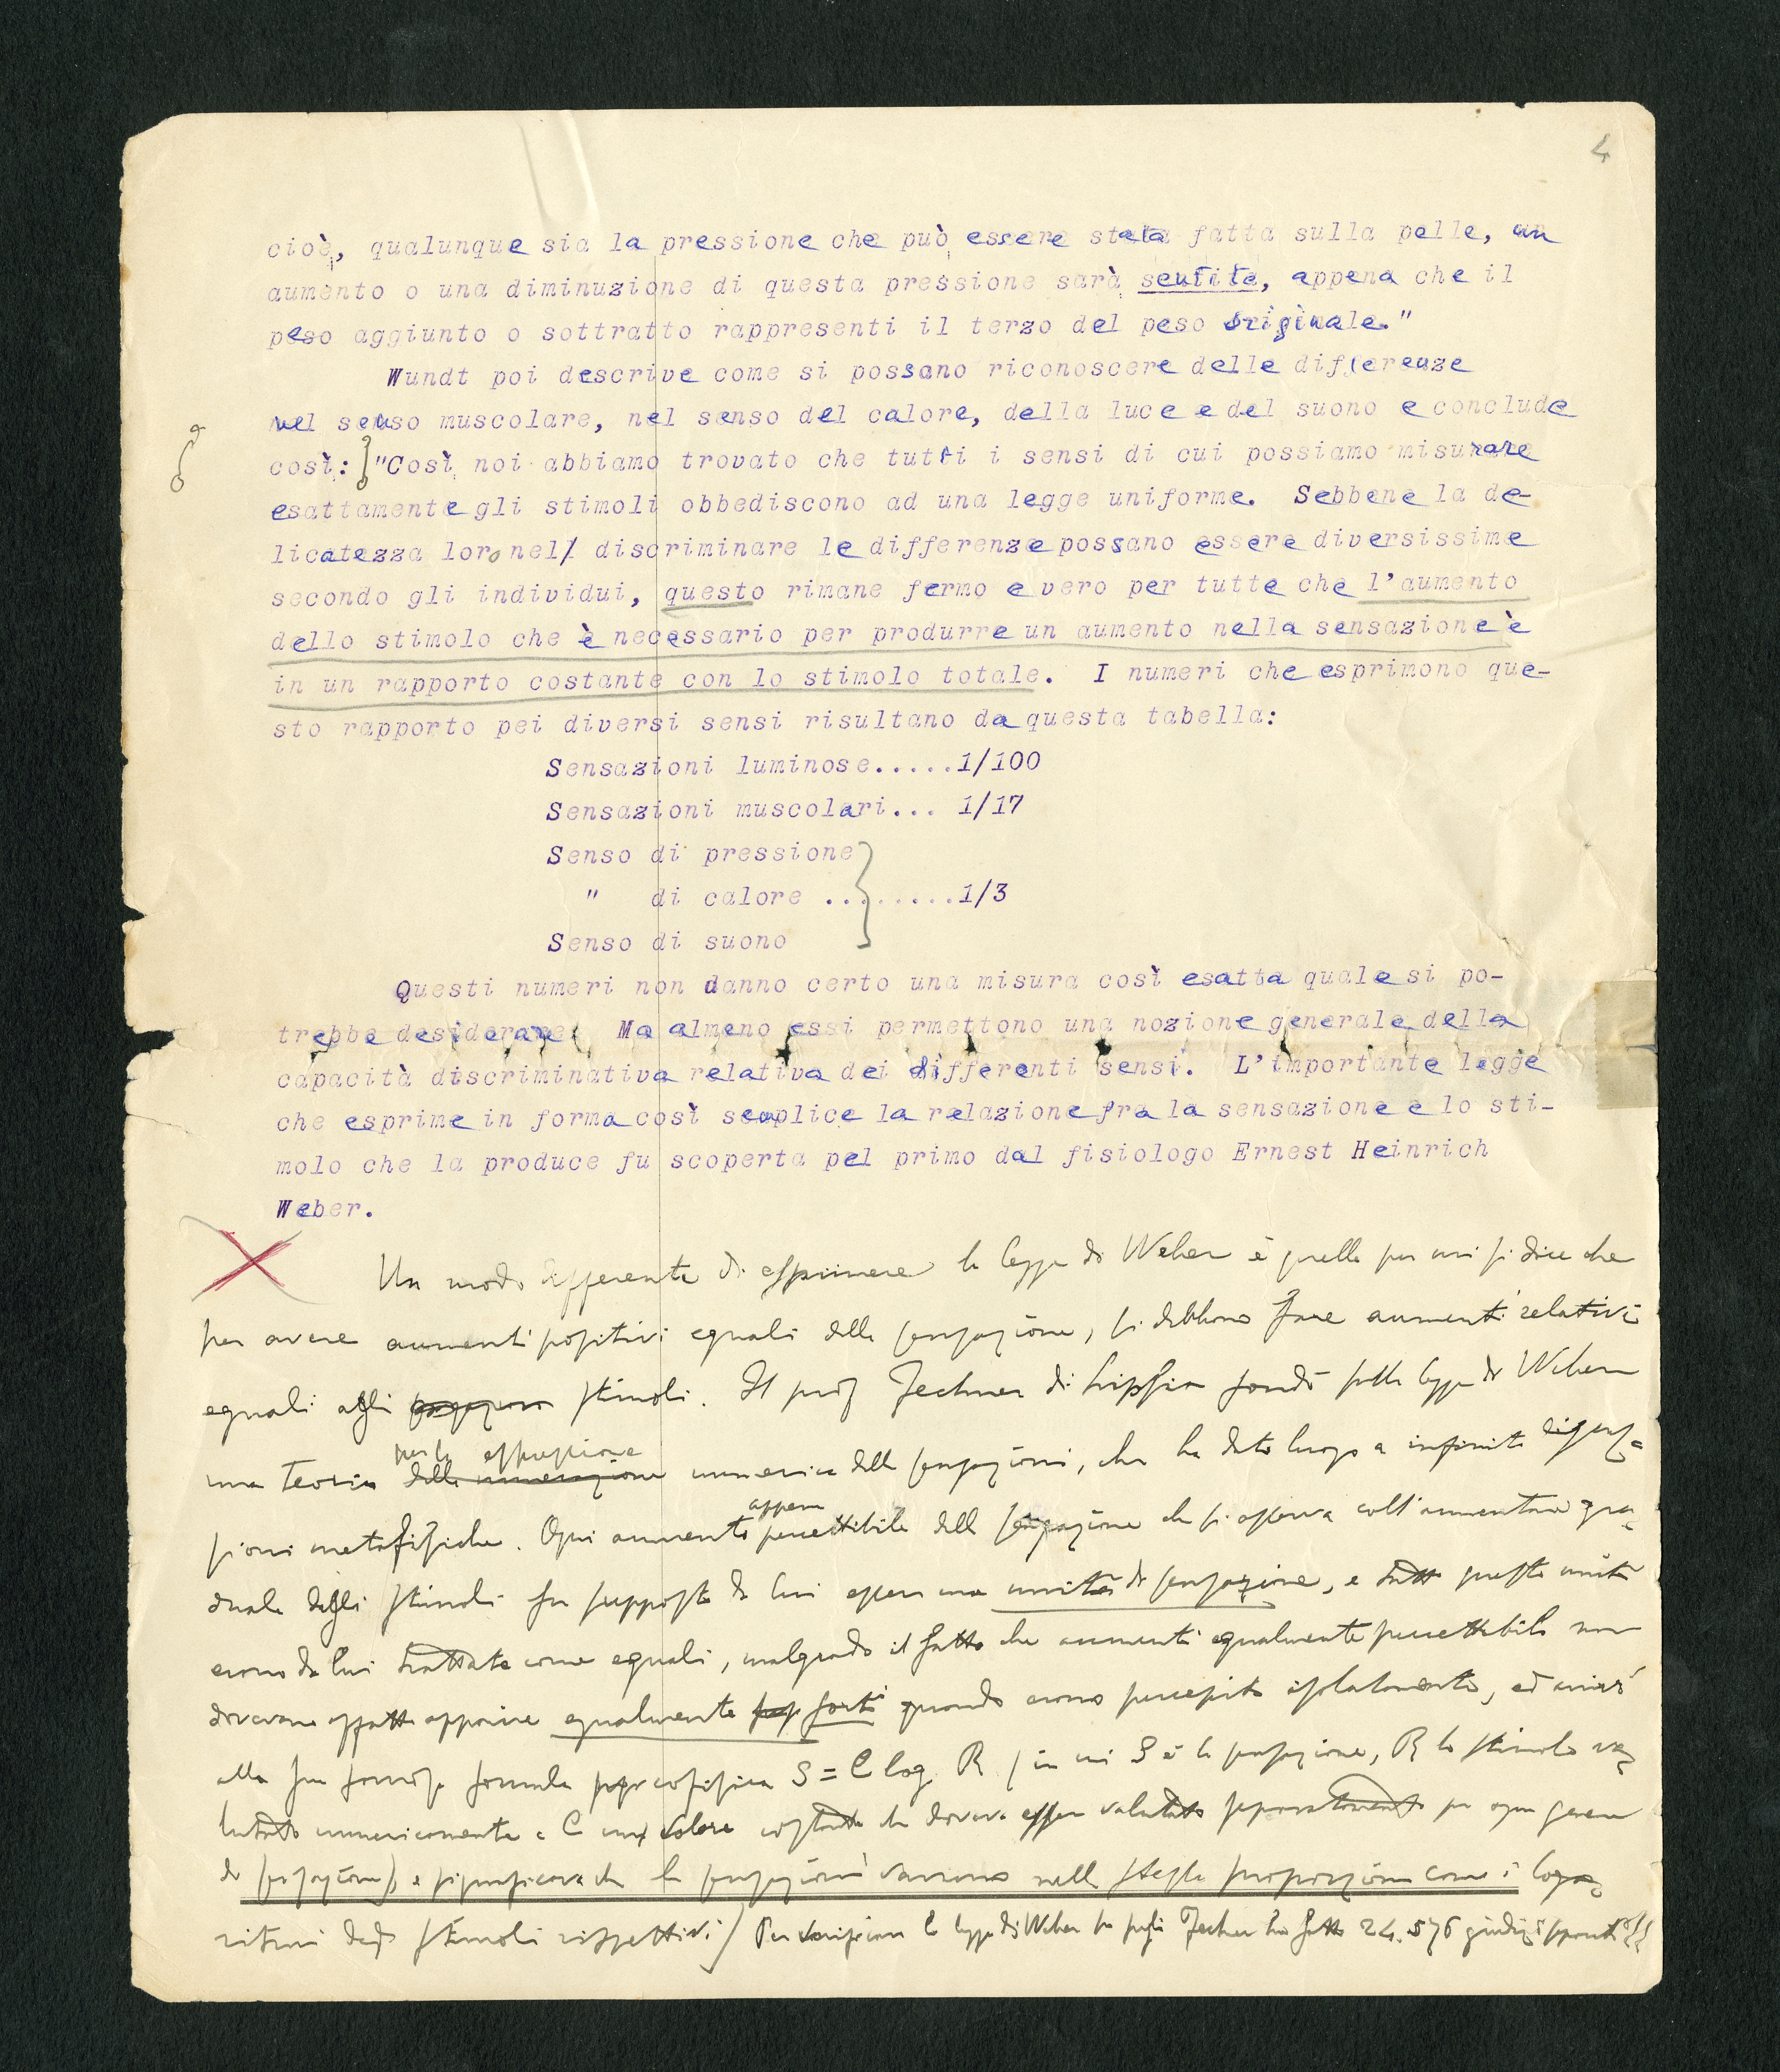 4
cioè, qualunque sia la pressione che può essere stata fatta sulla pelle, un
aumento o una diminuzione di questa pressione sarà sentita, appena che il
peso aggiunto o sottratto rappresenti il terzo del peso originale."
Wundt poi descrive come si possano riconoscere delle differenze
nel senso muscolare, nel senso del calore, della luce e del suono e conclude
così: "Così noi abbiamo trovato che tutti i sensi di cui possiamo misurare
esattamente gli stimoli obbediscono ad una legge uniforme. Sebbene la de-
licatezza loro nel discriminare le differenze possano essere diversissime
secondo gli individui, questo rimane fermo e vero per tutte che l'aumento
dello stimolo che è necessario per produrre un aumento nella sensazione è
in un rapporto costante con lo stimolo totale. I numeri che esprimono que-
sto rapporto pei diversi sensi risultano da questa tabella:
Sensazioni luminose.....1/100
Sensazioni muscolari... 1/17
Senso di pressione
" di calore .........1/3
Senso di suono
Questi numeri non danno certo una misura così esatta quale si po-
trebbe desiderare. Ma almeno essi permettono una nozione generale della
capacità discriminativa relativa dei differenti sensi. L'importante legge
che esprime in forma così semplice la relazione fra la sensazione e lo sti-
molo che la produce fu scoperta pel primo dal fisiologo Ernest Heinrich
Weber.
Un modo differente di esprimere la legge di Weber è quello per cui si dice che
per avere aumenti positivi eguali della sensazione, si debbono fare aumenti relativi
eguali agli stimoli. Il prof Fechner di Lipsia fondò sulla legge di Weber
una teoria per la espressione numerica delle sensazioni, che ha dato luogo a infinite discus=
sioni metafisiche. Ogni aumento appena percettibile della sensazione che si osserva coll'aumentare gra=
duale degli stimoli fu supposto da lui essere una unità di sensazione, e tutte queste unità
erano da lui trattate come eguali, malgrado il fatto che aumenti egualmente percettibili non
dovevano affatto apparire egualmente forti quando erano percepiti isolatamente, ed arrivò
alla sua famosa formula psicofisica S = C log. R (in cui S è la sensazione, R lo stimolo va=
lutato numericamente e C un valore costante che doveva esser valutato separatamente per ogni genere
di sensazione) e significava che le sensazioni variano nella stessa proporzione come i loga=
ritmi degli stimoli rispettivi) Per verificare la legge di Weber Fechner ha fatto 24.576 giudizi separati